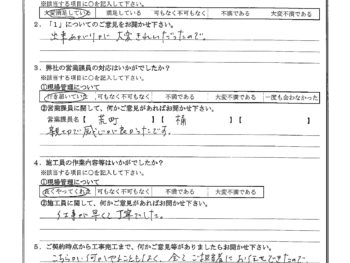 ※該当する項目に○を記入して下さい。
大変満足している 満足している 可もなく不可もなく 不満である 大変不満である
2．「1」についてのご意見をお聞かせ下さい。
出来あがりが大変きれいだったので。
3．弊社の営業課員の対応はいかがでしたか？
※該当する項目に○を記入して下さい。
①現場管理について
行き届いていた 可もなく不可もなく 不満である 大変不満である 一度も会わなかった
②営業課員に関して、何かご意見があればお聞かせ下さい。
営業課員名【 】【 橘 】【 】
親切で感じの良い方でした。
4．施工員の作業内容等はいかがでしたか？
※該当する項目に○を記入して下さい。
①現場管理について
良くやってくれた 可もなく不可もなく 不満である 大変不満である
②施工員に関して、何かご意見があればお聞かせ下さい。
仕事が早くて丁寧でした。
5．ご契約時点から工事完工まで、何かご意見等がありましたらお聞かせ下さい。